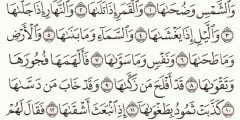 وَالشَّمْسِ وَضُحَىٰهَا ۝١ وَالْقَمَرِ إِذَا تَلَىٰهَا ۝٢ وَالنَّهَارِ إِذَا جَلَّىٰهَا
۝٣ وَالَّيْلِ إِذَا يَغْشَىٰهَا ۝٤ وَالسَّمَاءِ وَمَا بَنَىٰهَا ۝٥ وَالْأَرْضِ
وَمَا طَحَىٰهَا ۝٦ وَنَفْسٍ وَمَا سَوَّىٰهَا ۝٧ فَأَلْهَمَهَا فُجُورَهَا
وَتَقْوَىٰهَا ۝٨ قَدْ أَفْلَحَ مَن زَكَّىٰهَا ۝٩ وَقَدْ خَابَ مَن دَسَّىٰهَا
۝١٠ كَذَّبَتْ ثَمُودُ بِطَغْوَىٰهَا ۝١١ إِذِ انبَعَثَ أَشْقَىٰهَا ۝١٢ فَقَالَ لَهُمْ